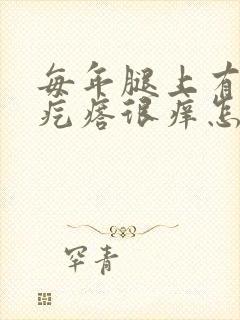 每年腿上有
疙瘩很痒怎
罕青